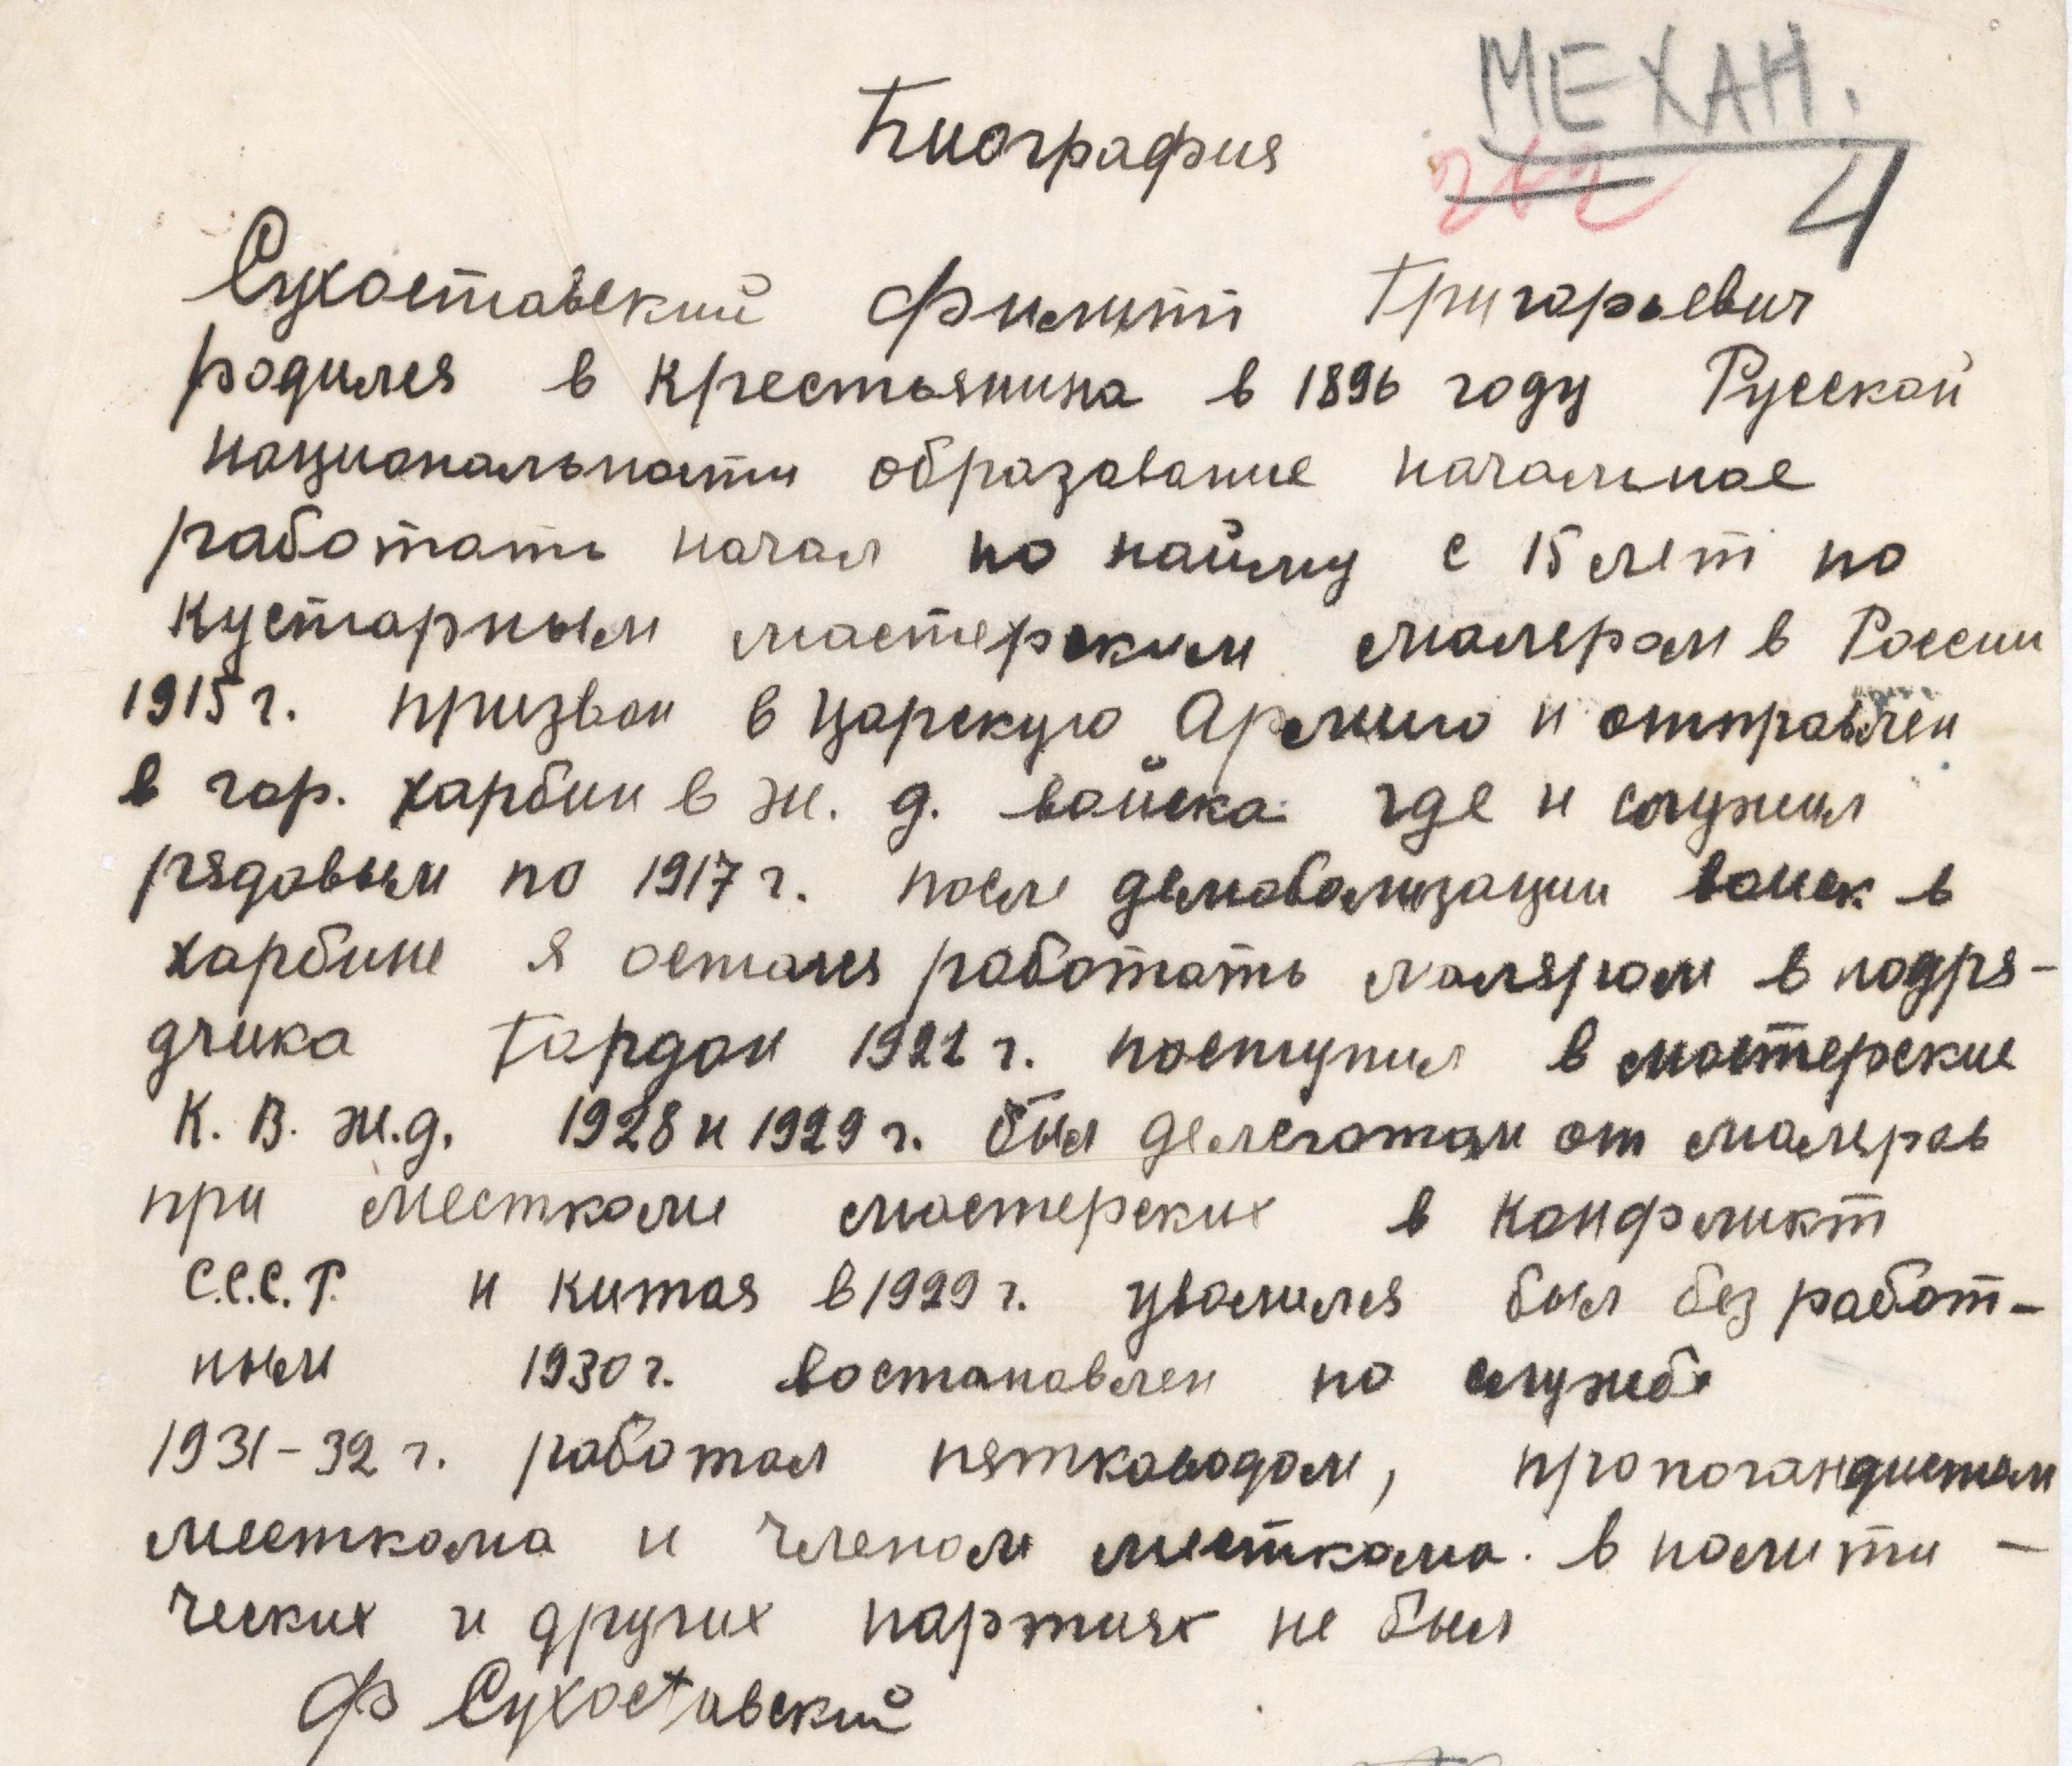 МЕХАН.
Биография
4
Сухоставский Филипп Григорьевич
родился в Крестьянина в 1896 году Русской
национальности образование начальное
работать начал по найму с 15 лет по
Кустарным мастерским малером в России
1915 г. призван в Царскую Армию и отправлен
в гор. харбин в ж. д. войска где и служил
рядовым по 1917 г. после демоболизации воиск в
харбине я остался работать маляром в подря-
дчика Гордон 1921 г. поступил в мастерские
К. В. ж.д. 1928 и 1929 г. был делегатом от малеров
при месткоме мастерских в Конфликт
С.С.С.Р. и Китая в 1929 г. уволился был без работ-
ным 1930 г. востановлен по службе
1931-32 г. работал пятководом, пропогандистом
месткома и членом месткома. в полити-
ческих и других партиях не был
Ф Сухоставский